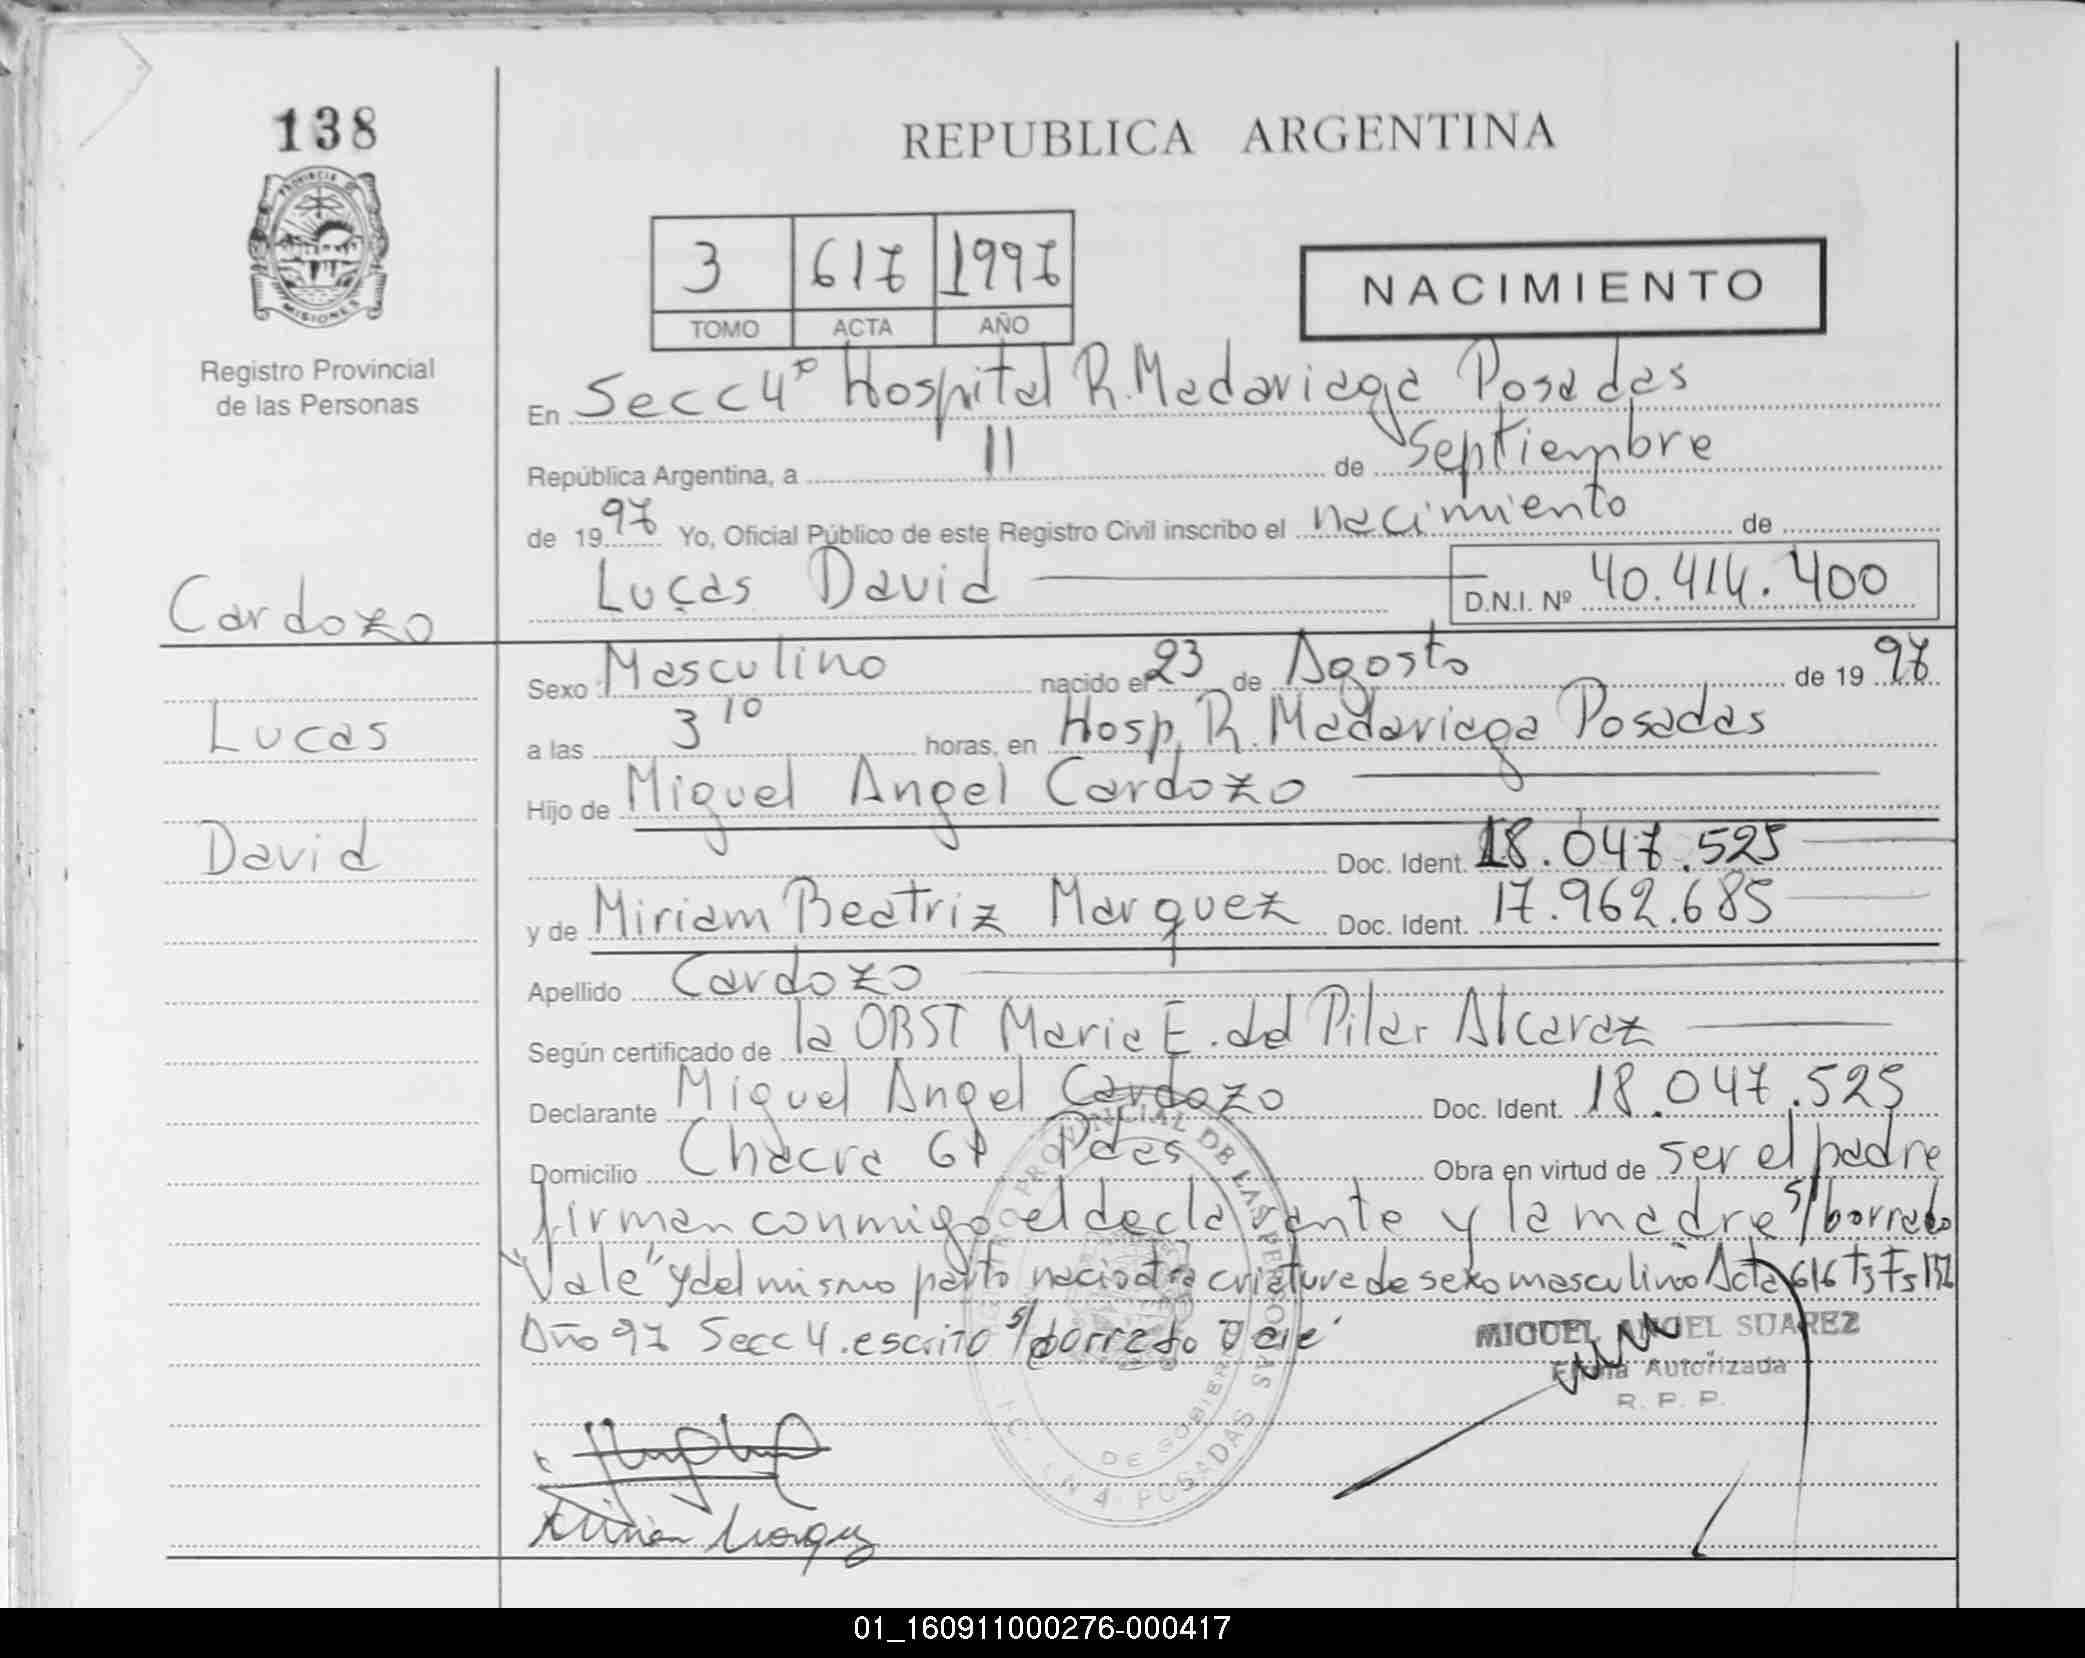 138
PROVINCIA DE
MISIONES
Registro Provincial
de las Personas
Cardozo
Lucas
David
REPUBLICA ARGENTINA
3 617 1997
TOMO ACTA AÑO
NACIMIENTO
En Secc 4º Hospital R. Madariaga Posadas
República Argentina, a 11 de Septiembre
de 1997 Yo, Oficial Público de este Registro Civil inscribo el nacimiento de
Lucas David D.N.I. Nº 40.414.400
Sexo Masculino nacido el 23 de Agosto de 1997
a las 3 10 horas, en Hosp. R. Madariaga Posadas
Hijo de Miguel Angel Cardozo
Doc. Ident. 18.047.525
y de Miriam Beatriz Marquez Doc. Ident. 17.962.685
Apellido Cardozo
Según certificado de la OBST Maria E. del Pilar Alcaraz
Declarante Miguel Angel Cardozo Doc. Ident. 18.047.525
Domicilio Chacra Pdas Obra en virtud de ser el padre
firman conmigo el declarante y la madre s/borrado
"Vale" y del mismo parto nacio otra criatura de sexo masculino Acta 616 T3
Año 97 Secc 4. escrito s/borrado Vale
MIGUEL ANGEL SUAREZ
Firma Autorizada
R. P. P.
PROVINCIAL DE LAS PERSONAS
DE GOBIER
POSADAS
Marquez
01_160911000276-000417